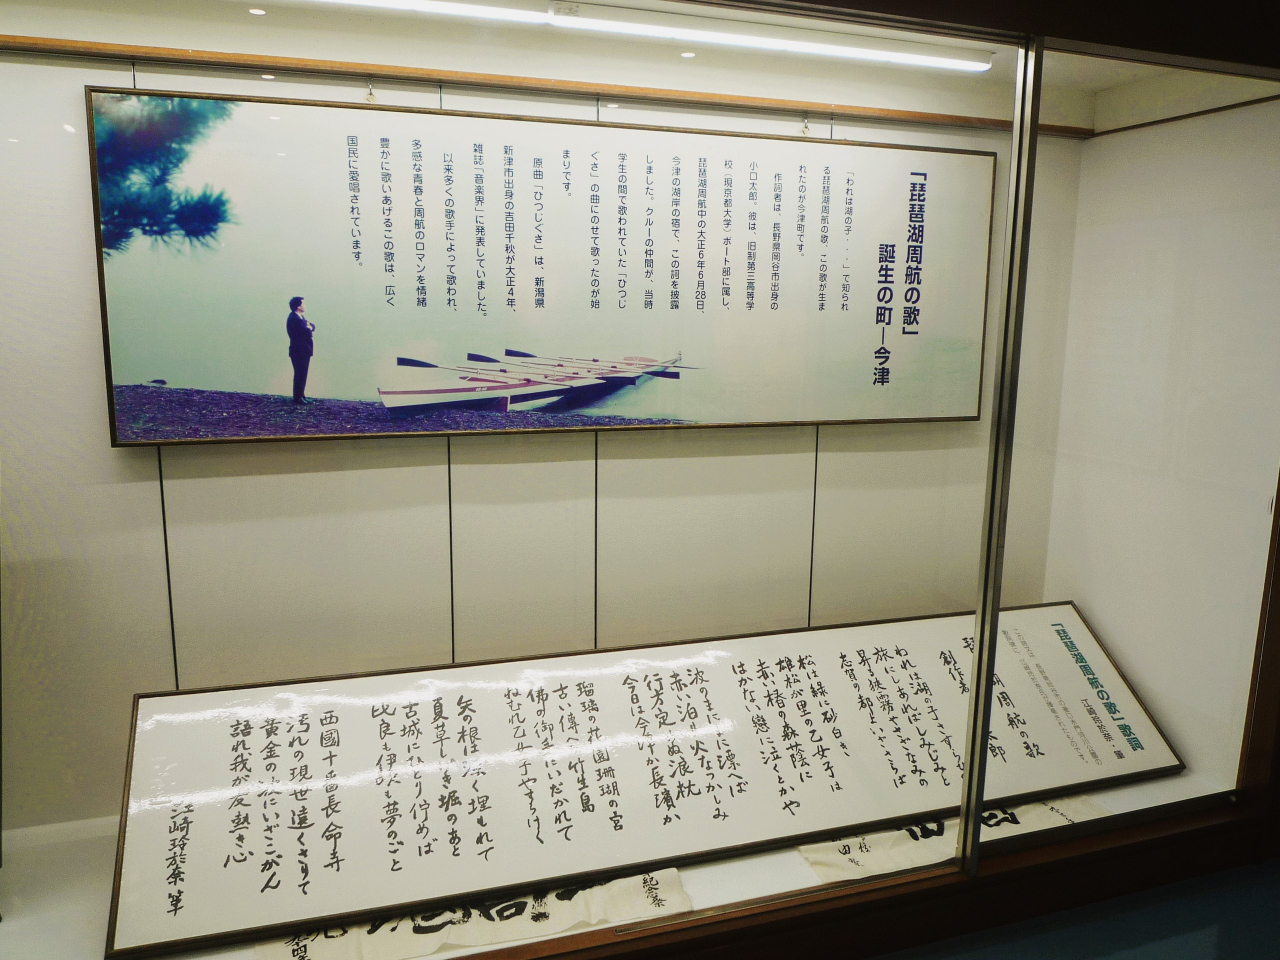 「琵琶湖周航の歌」
誕生の町―今津
「われは湖の子・・・」で知られ
る琵琶湖周航の歌、この歌が生ま
れたのが今津町です。
作詞者は、長野県岡谷市出身の
小口太郎。彼は、旧制第三高等学
校（現京都大学）ボート部に属し、
琵琶湖周航中の大正6年6月28日、
今津の湖岸の宿で、この詞を披露
しました。クルーの仲間が、当時
学生の間で歌われていた「ひつじ
ぐさ」の曲にのせて歌ったのが始
まりです。
原曲「ひつじぐさ」は、新潟県
新津市出身の吉田千秋が大正4年、
雑誌「音楽界」に発表していました。
以来多くの歌手によって歌われ、
多感な青春と周航のロマンを情緒
豊かに歌いあげるこの歌は、広く
国民に愛唱されています。
「琵琶湖周航の歌」歌詞
江崎玲於奈 筆
琵 湖周航の歌
創作者 太郎
われは湖の子さすらひの
旅にしあればしみじみと
昇る狭霧やさざなみの
志賀の都よいざさらば
松は緑に砂白き
雄松が里の乙女子は
赤い椿の森蔭に
はかない戀に泣くとかや
波のまにまに漂へば
赤い泊火なつかしみ
行方定めぬ浪枕
今日は今津か長濱か
瑠璃の花園珊瑚の宮
古い傳への竹生島
佛の御手にいだかれて
ねむれ乙女子やすらけく
矢の根は深く埋もれて
夏草しげき堀のあと
古城にひとり佇めば
比良も伊吹も夢のごと
西國十番長命寺
汚れの現世遠くさりて
黄金の波にいざこがん
語れ我が友熱き心
江崎玲於奈 筆
紀念祭